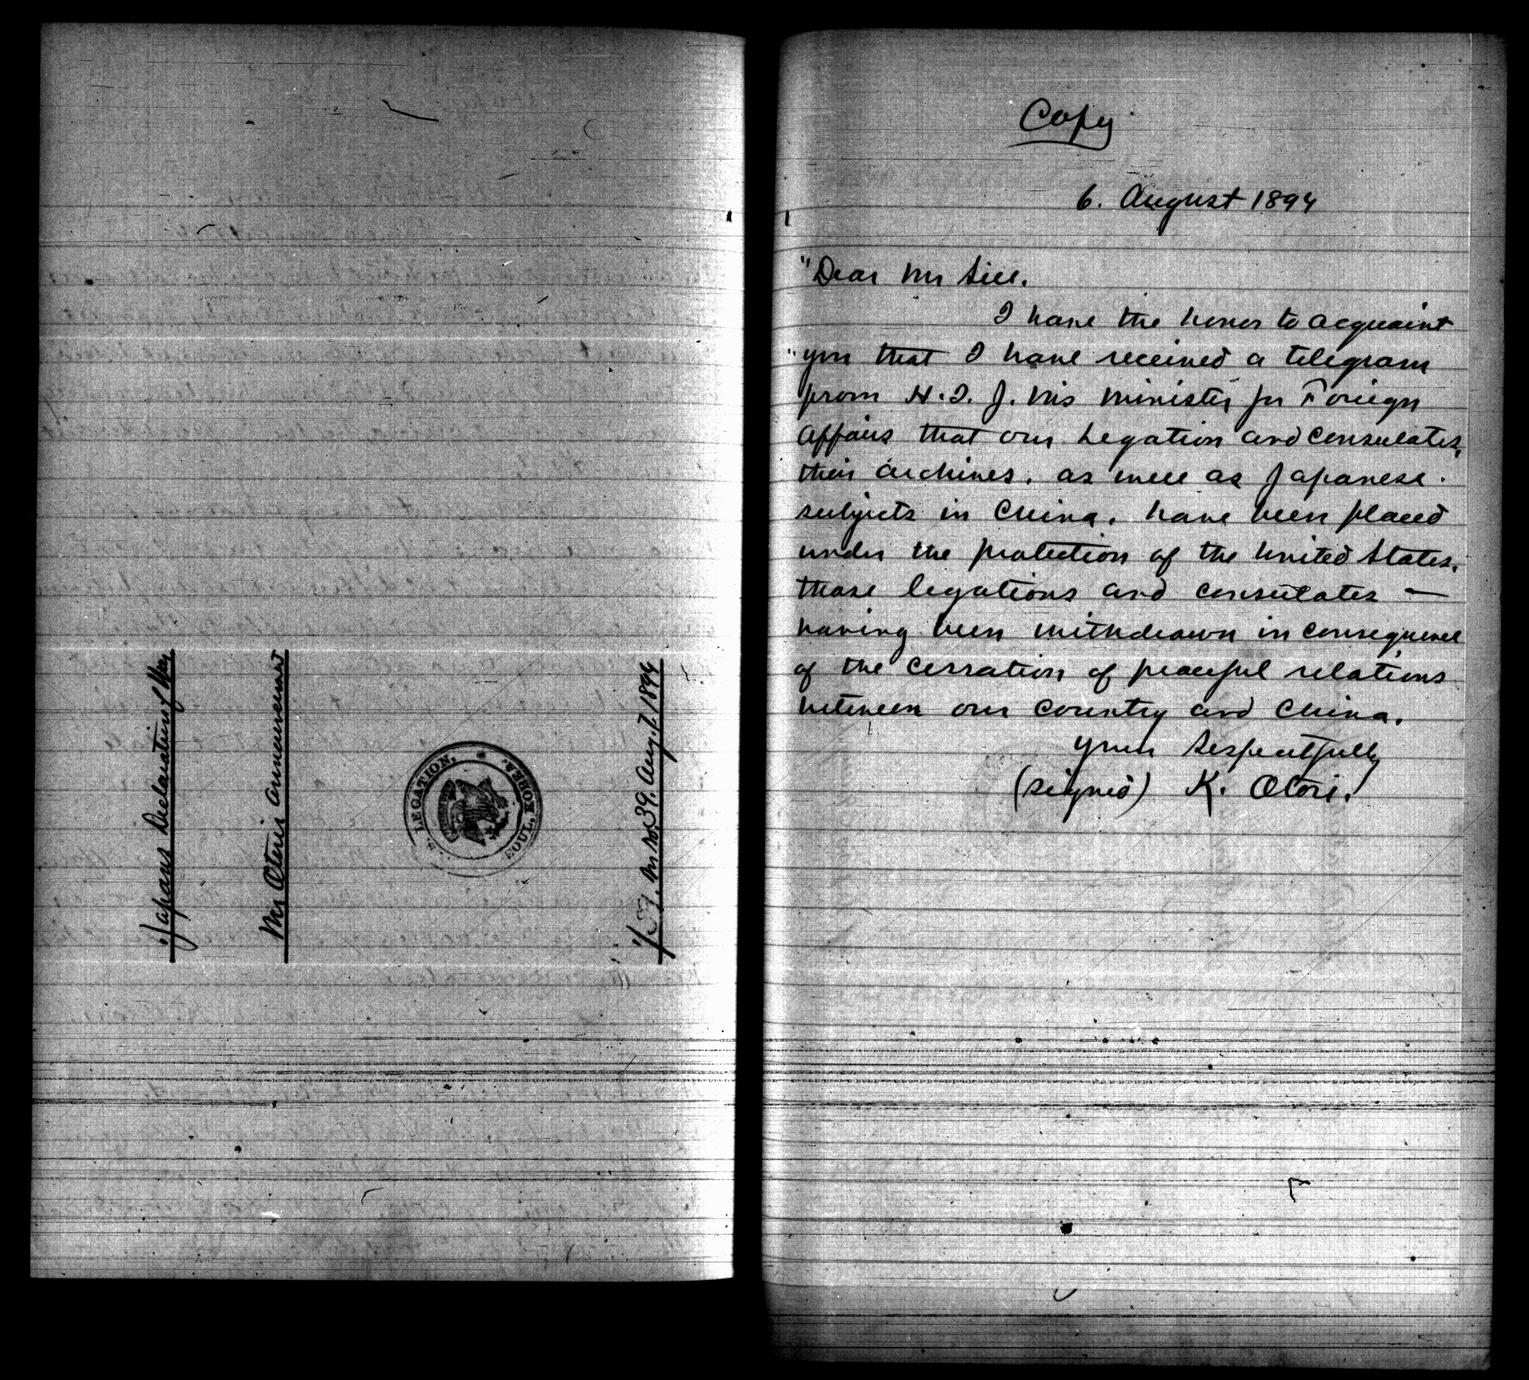 "Japans Declaration of War
Mr Otoris announcement
LEGATION,
SEOUL, KOREA.
M No 39. Aug. 7. 1894
Copy
6. August 1894
"Dear Mr Sill.
I have the honor to acquaint
"you that I have received a telegram
from H. I. J. M's Minister for Foreign
Affairs that our Legation and Consulates,
their archives, as well as Japanese
subjects in China, have been placed
under the protection of the United States,
those legations and consulates —
having been withdrawn in consequence
of the cessation of peaceful relations
between our country and China.
Yours respectfully
(signed) K. Otori.